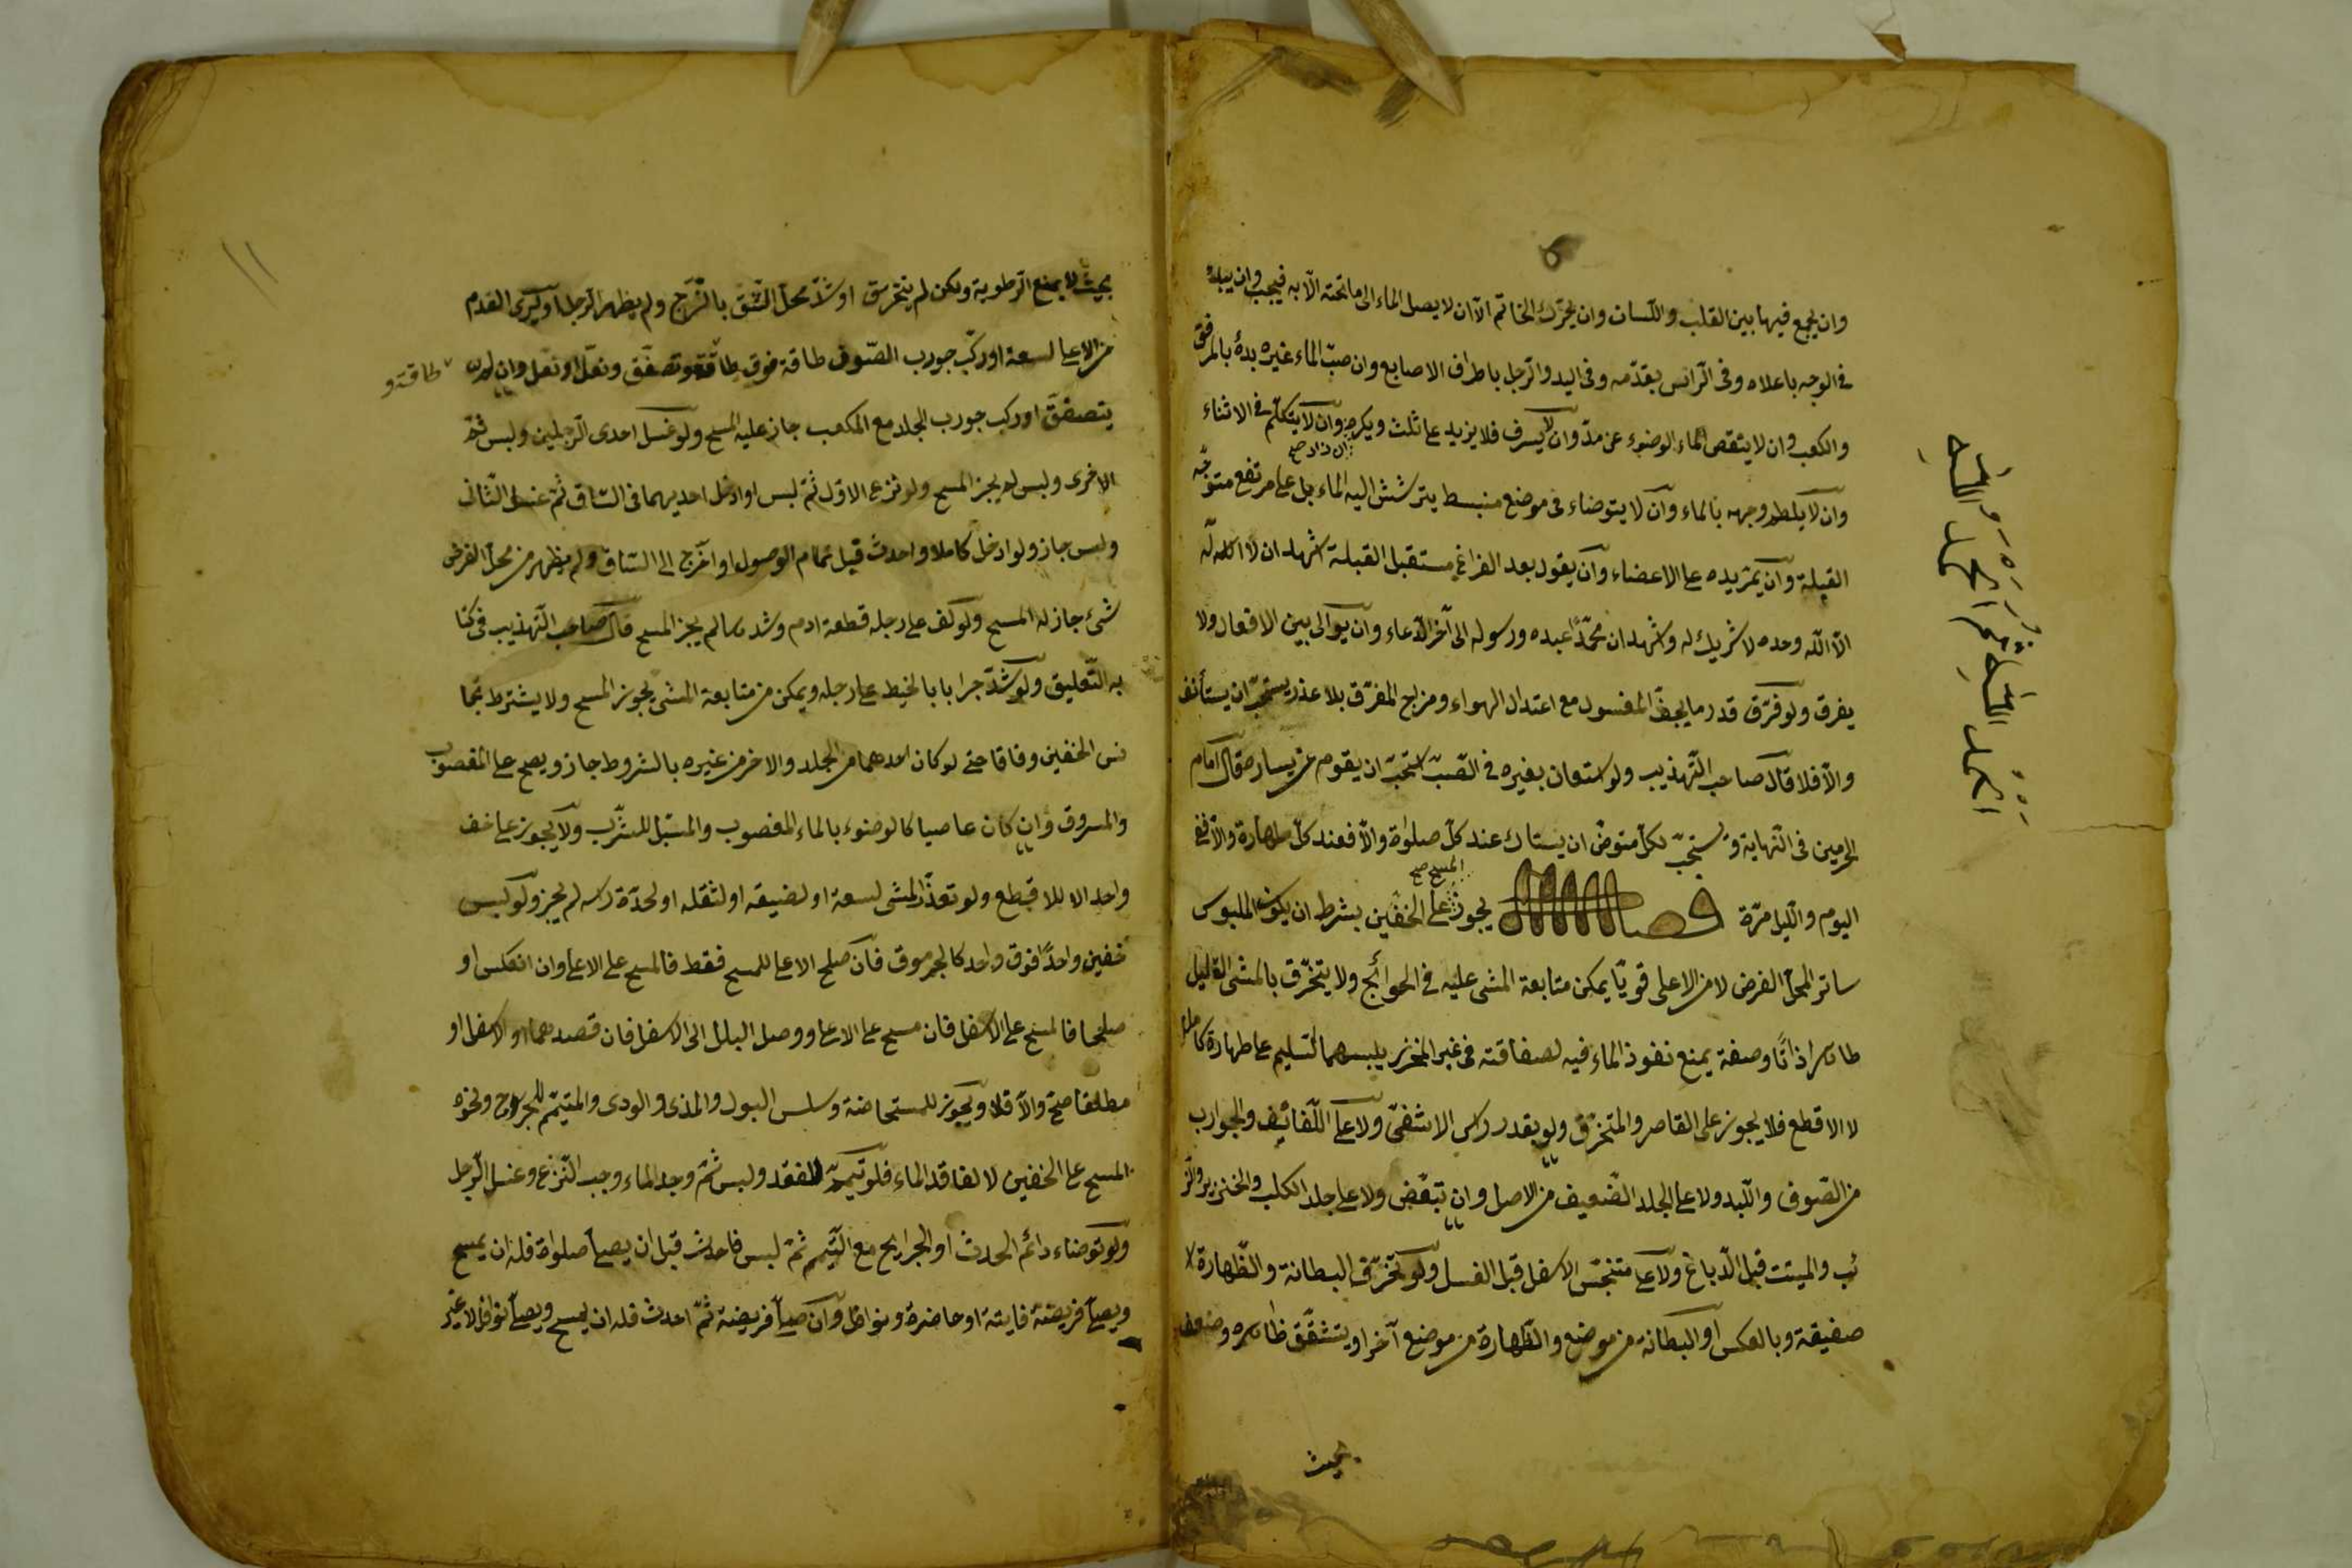 وان يجمع فيها بين القلب واللسان وان يحرّك الخاتم الّا ان لا يصل الماء الى ما تحته الّا به فيجب وان يبدأ
فى الوجه باعلاه وفى الرأس بمقدّمه وفى اليد والرجل باطراف الاصابع وان صبّ الماء غيره بدأ بالمرفق
والكعب وان لا ينقص الماء الوضوء عن مدّ وان لا يسرف فلا يزيد على ثلث ويكره ان زاد صح وان لا يتكلّم فى الاثناء
وان لا يلطم وجهه بالماء وان لا يتوضاء فى موضع منبسط يترشش اليه الماء بل على مرتفع متوجّه
القبلة وان يمرّ يده على الاعضاء وان يقول بعد الفراغ مستقبل القبلة اشهد ان لا اله
الّا الله وحده لا شريك له واشهد ان محمّدًا عبده ورسوله الى آخر الدّعاء وان يوالى بين الافعال ولا
يفرق ولو فرّق قدر ما يجفّ المغسول مع اعتدال الهواء ومزاج المفرّق بلا عذر يستحبّ ان يستأنف
والّا فلا قال صاحب التّهذيب ولو استعان بغيره فى الصّبّ استحبّ ان يقوم عن يساره قال امام
الحرمين فى النّهاية ويستحبّ لكلّ متوضّ ان يستاك عند كلّ صلوٰة والّا فعند كلّ طهارة والّا ففى
اليوم والليل مرّة فصل يجوز المسح صح على الخفّين بشرط ان يكون الملبوس
ساتر المحلّ الفرض لا من الاعلى قويّا يمكن متابعة المشى عليه فى الحوائج ولا يتخرّق بالمشى القليل
طاهرا ذاتًا وصفة يمنع نفوذ الماء فيه لصفاقته فى غير المخرز يلبسهما السّليم على طهارة كاملة
لا الاقطع فلا يجوز على القاصر والمتخرّق ولو بقدر رأس الاشفى ولا على اللّفائف والجوارب
من الصّوف واللّبد ولا على الجلد الضّعيف من الاصل وان تبعّض ولا على جلد الكلب والخنزير
والميتت قبل الدّباغ ولا على متنجّس الاسفل قبل الغسل ولو تخرّقت البطانة والظّهارة
صفيقة وبالعكس او البطانة من موضع والظّهارة من موضع آخر او يتشقّق ظاهره وضعف
بحيث
الحمد للّٰه ثم الحمد للّٰه
١١
بحيث لا يمنع الرّطوبة ولكن لم يتخرّق او شدّ محلّ الشّق بالشّرج ولم يظهر الرجل او يرى القدم
من الاعلى لسعة او ركّب جورب الصّوف طاقة فوق طاقة وتصفّق ونعّل او نعل وان لم
طاقة و
يتصفق او ركب جورب الجلد مع المكعب جاز عليه المسح ولو غسل احدى الرجلين ولبس ثمّ
الاخرى ولبس لم يجز المسح ولو نزع الاوّل ثمّ لبس او ادخل احديهما فى السّاق ثمّ غسل الثّانى
ولبس جاز ولو ادخل كاملا واحدث قبل تمام الوصول او اخرج الى السّاق ولم يظهر من محلّ الفرض
شئ جاز له المسح ولو لفّ على رجله قطعة ادم وشدها لم يجز المسح قال صاحب التّهذيب فى كتا
به التّعليق ولو شدّ جرابا بالخيط على رجله ويمكن من متابعة المشى يجوز المسح ولا يشترط تجا
نس الخفين وفاقا حتى لو كان احدهما من الجلد والاخر من غيره بالشروط جاز ويصح على المغصوب
والمسروق وان كان عاصيا كالوضوء بالماء المغصوب والمسبّل للشّرب ولا يجوز على خف
واحد الا للاقطع ولو تعذّر المشى لسعة او لضيقه او لثقله او لحدّة رأسه لم يجز ولو لبس
خفين واحدًا فوق واحد كالجرموق فان صلح الاعلى للمسح فقط فالمسح على الاعلى وان انعكس او
صلحا فالمسح على الاسفل فان مسح على الاعلى ووصل البلل الى الاسفل فان قصدهما او الاسفل او
مطلقا صحّ والّا فلا ويجوز للمستحاضة وسلس البول والمذى والودى والمتيمّم للجروح ونحوه
المسح على الخفين لا لفاقد الماء فلو تيمّم للفقد ولبس ثمّ وجد الماء وجب النّزع وغسل الرّجل
ولو توضاء دائم الحدث او الجرايح مع التّيمم ثمّ لبس فاحدث قبل ان يصلّى صلوٰة فله ان يمسح
ويصلّى فريضة فايتة او حاضرة ونوافل وان صلّى فريضة ثمّ احدث فله ان يمسح ويصلّى نوافل لا غير